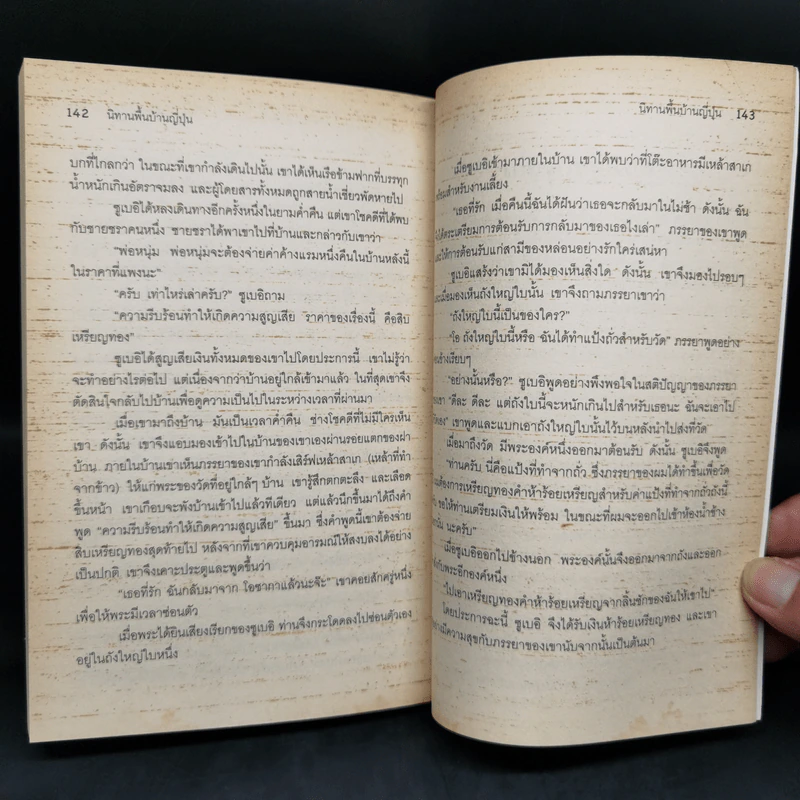 142 นิทานพื้นบ้านญี่ปุ่น
บกที่ไกลกว่า ในขณะที่เขากำลังเดินไปนั้น เขาได้เห็นเรือข้ามฟากที่บรรทุก
น้ำหนักเกินอัตราจมลง และผู้โดยสารทั้งหมดถูกสายน้ำเชี่ยวพัดหายไป
ซูเบอิได้หลงเดินทางอีกครั้งหนึ่งในยามค่ำคืน แต่เขาโชคดีที่ได้พบ
กับชายชราคนหนึ่ง ชายชราได้พาเขาไปที่บ้านและกล่าวกับเขาว่า
"พ่อหนุ่ม พ่อหนุ่มจะต้องจ่ายค่าค้างแรมหนึ่งคืนในบ้านหลังนี้
ในราคาที่แพงนะ"
"ครับ เท่าไหร่เล่าครับ?" ซูเบอิถาม
"ความรีบร้อนทำให้เกิดความสูญเสีย ราคาของเรื่องนี้ คือสิบ
เหรียญทอง"
ซูเบอิได้สูญเสียเงินทั้งหมดของเขาไปโดยประการนี้ เขาไม่รู้ว่า
จะทำอย่างไรต่อไป แต่เนื่องจากว่าบ้านอยู่ใกล้เข้ามาแล้ว ในที่สุดเขาจึง
ตัดสินใจกลับไปบ้านเพื่อดูความเป็นไปในระหว่างเวลาที่ผ่านมา
เมื่อเขามาถึงบ้าน มันเป็นเวลาค่ำคืน ช่างโชคดีที่ไม่มีใครเห็น
เขา ดังนั้น เขาจึงแอบมองเข้าไปในบ้านของเขาเองผ่านรอยแตกของฝา
บ้าน ภายในบ้านเขาเห็นภรรยาของเขากำลังเสิร์ฟเหล้าสาเก (เหล้าที่ทำ
จากข้าว) ให้แก่พระของวัดที่อยู่ใกล้ๆ บ้าน เขารู้สึกตกตะลึง และเลือด
ขึ้นหน้า เขาเกือบจะพังบ้านเข้าไปแล้วทีเดียว แต่แล้วนึกขึ้นมาได้ถึงคำ
พูด "ความรีบร้อนทำให้เกิดความสูญเสีย" ขึ้นมา ซึ่งคำพูดนี้เขาต้องจ่าย
สิบเหรียญทองสุดท้ายไป หลังจากที่เขาควบคุมอารมณ์ให้สงบลงได้อย่าง
เป็นปกติ เขาจึงเคาะประตูและพูดขึ้นว่า
"เธอที่รัก ฉันกลับมาจาก โอซากาแล้วนะจ๊ะ" เขาคอยสักครู่หนึ่ง
เพื่อให้พระมีเวลาซ่อนตัว
เมื่อพระได้ยินเสียงเรียกของซูเบอิ ท่านจึงกระโดดลงไปซ่อนตัวเอง
อยู่ในถังใหญ่ใบหนึ่ง
นิทานพื้นบ้านญี่ปุ่น 143
เมื่อซูเบอิเข้ามาภายในบ้าน เขาได้พบว่าที่โต๊ะอาหารมีเหล้าสาเก
สำหรับงานเลี้ยง
"เธอที่รัก เมื่อคืนนี้ฉันได้ฝันว่าเธอจะกลับมาในไม่ช้า ดังนั้น ฉัน
ได้ตระเตรียมการต้อนรับการกลับมาของเธอไงเล่า" ภรรยาของเขาพูด
ให้การต้อนรับแก่สามีของหล่อนอย่างรักใคร่เสน่หา
ซูเบอิแสร้งว่าเขามิได้มองเห็นสิ่งใด ดังนั้น เขาจึงมองไปรอบๆ
เมื่อมองเห็นถังใหญ่ใบนั้น เขาจึงถามภรรยาเขาว่า
"ถังใหญ่ใบนี้เป็นของใคร?"
"โอ ถังใหญ่ใบนี้หรือ ฉันได้ทำแป้งถั่วสำหรับวัด" ภรรยาพูดอย่าง
เรียบๆ
"อย่างนั้นหรือ?" ซูเบอิพูดอย่างพึงพอใจในสติปัญญาของภรรยา
เขา "ดีละ ดีละ แต่ถังใบนี้จะหนักเกินไปสำหรับเธอนะ ฉันจะเอาไป
เอง" เขาพูดและแบกเอาถังใหญ่ใบนั้นไว้บนหลังนำไปส่งที่วัด
เมื่อมาถึงวัด มีพระองค์หนึ่งออกมาต้อนรับ ดังนั้น ซูเบอิจึงพูด
"ท่านครับ นี่คือแป้งที่ทำจากถั่ว ซึ่งภรรยาของผมได้ทำขึ้นเพื่อวัด
ต้องการเหรียญทองคำห้าร้อยเหรียญสำหรับค่าแป้งที่ทำจากถั่วถังนี้
ขอให้ท่านเตรียมเงินให้พร้อม ในขณะที่ผมจะออกไปเข้าห้องน้ำข้าง
นะครับ"
เมื่อซูเบอิออกไปข้างนอก พระองค์นั้นจึงออกมาจากถังและออก
กับพระอีกองค์หนึ่ง
"ไปเอาเหรียญทองคำห้าร้อยเหรียญจากลิ้นชักของฉันให้เขาไป"
โดยประการฉะนี้ ซูเบอิ จึงได้รับเงินห้าร้อยเหรียญทอง และเขา
มีความสุขกับภรรยาของเขานับจากนั้นเป็นต้นมา